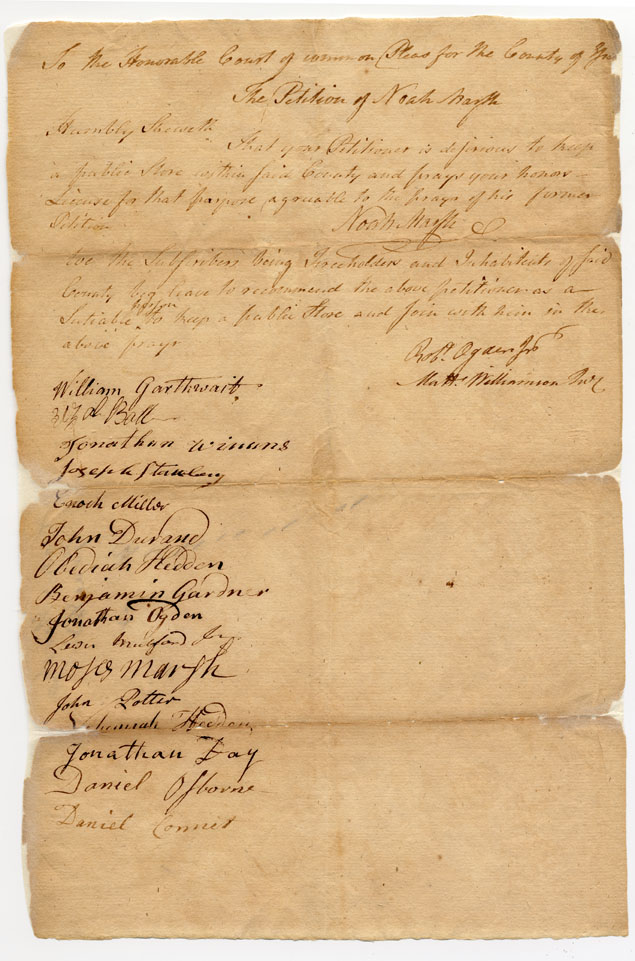 To the Honorable Court of common Pleas for the County of
The Petition of Noah Marsh
Humbly Sheweth
That your Petitioner is desirious to keep
a public Store within said County and prays your honors
License for that purpose agreable to the prayr of his former
Petition
Noah Marsh
We the Subscribers being Freeholders and Inhabitents of said
County beg leave to recommend the above petitioner as a
person
Sutiable to keep a public Store and Join with him in the
above prayr
Robt. Ogden Jnr
Matts. Williamson Junr
William Garthwait
Ball
Jonathan winans
Joseph
Enoch Miller
John Durand
Obediah Hedden
Benjamin Gardner
Jonathan Ogden
Lewis Mulford Jr.
Moses Marsh
John Potter
Nehemiah Hedden
Jonathan Day
Daniel Osborne
Daniel Connet